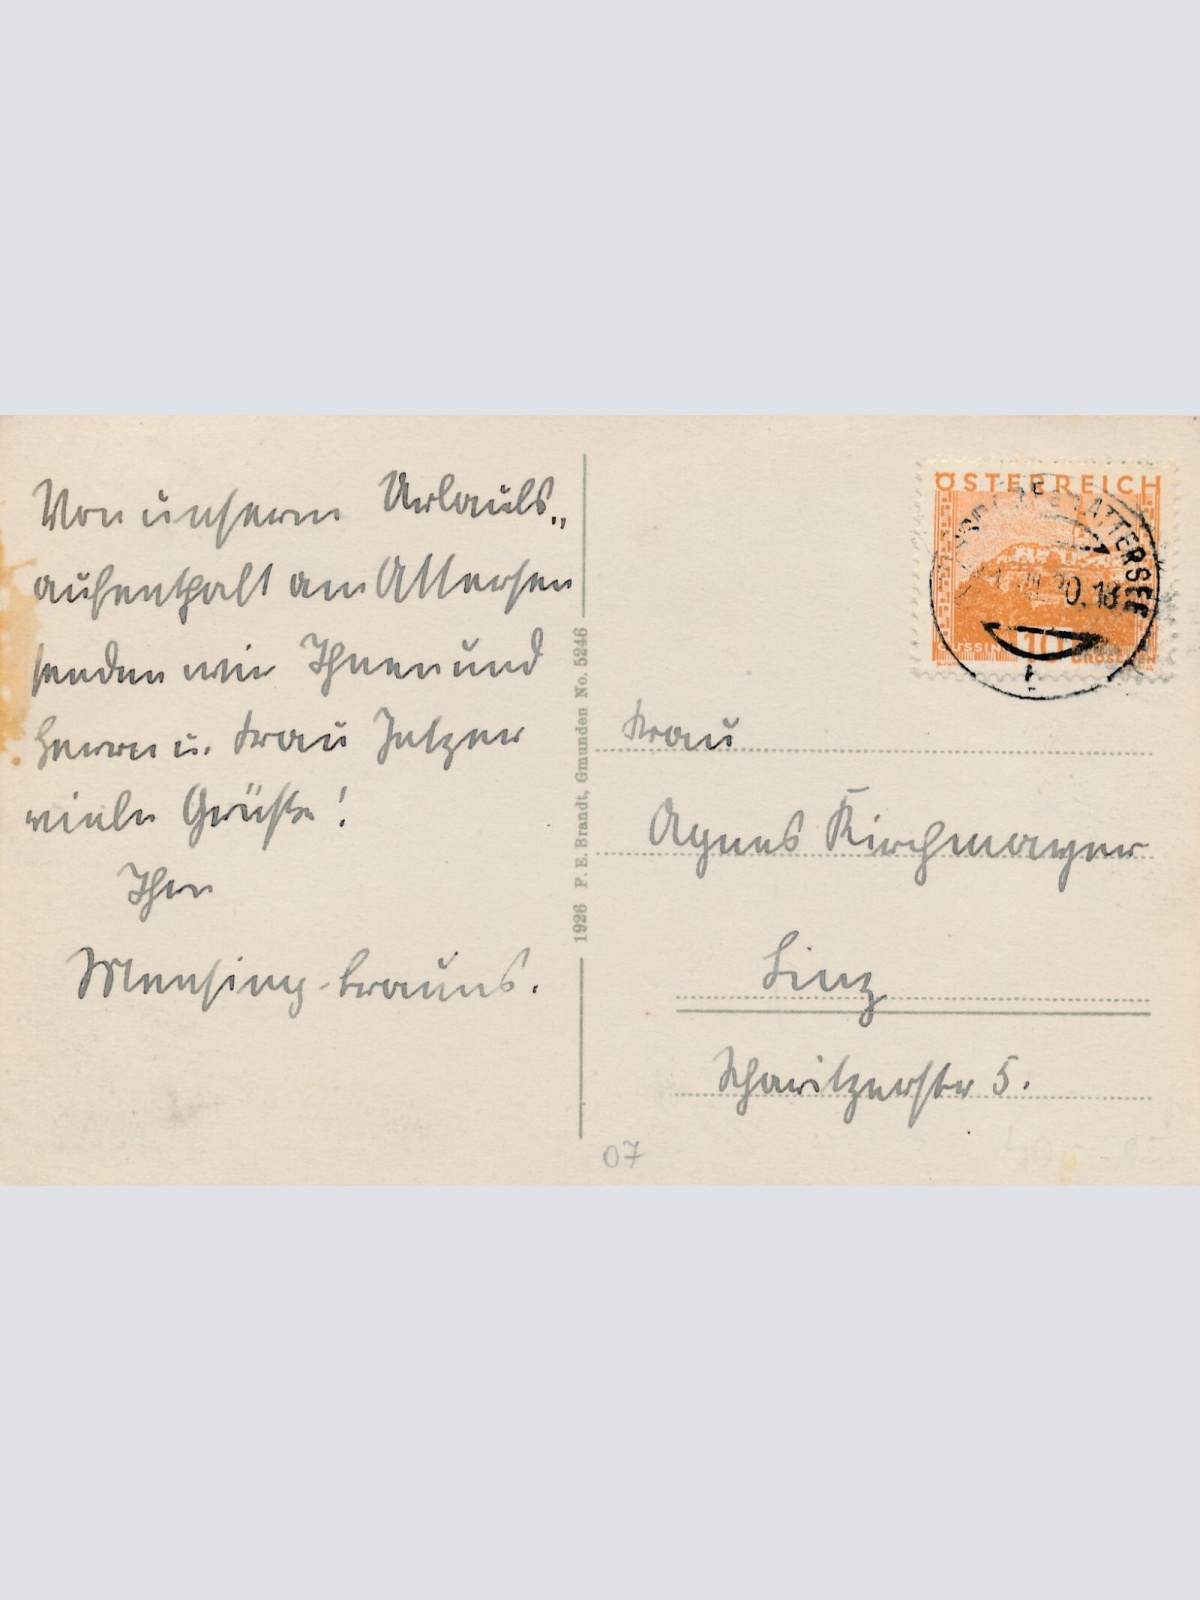 Von unserm Urlaubs„
aufenthalt am Attersee
senden wir Ihnen und
Herrn u. Frau Jetzer
viele Grüße!
Ihre
Mensing-Krauns.
1926 F. E. Brandt, Gmunden No. 5246
ÖSTERREICH
ATTERSEE
GÜSSING
10
GROSCHEN
Frau
Agnes Kirchmayer
Linz
Scharitzerstr 5.
07